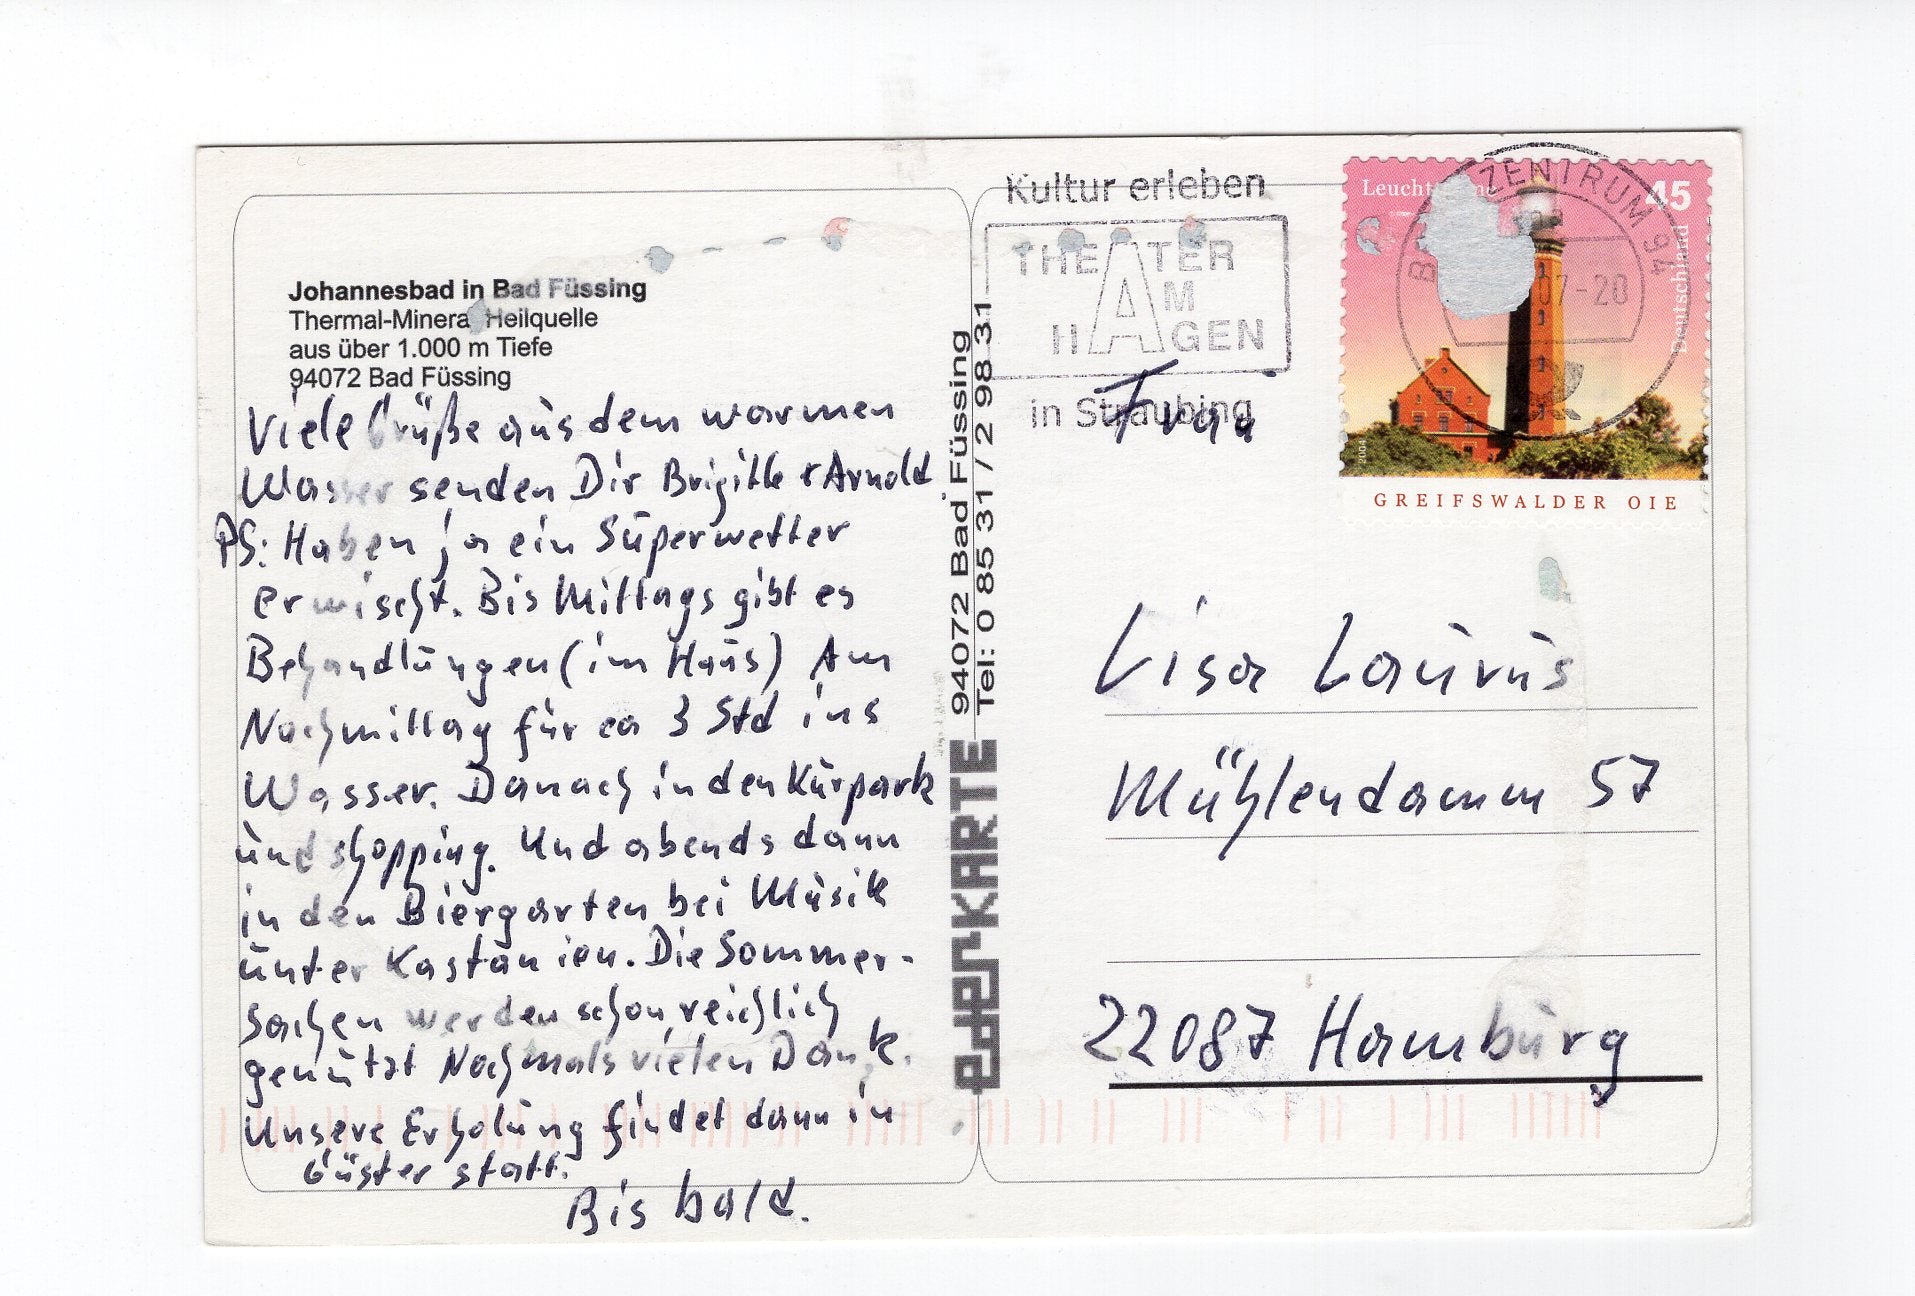 Johannesbad in Bad Füssing
Thermal-Mineral Heilquelle
aus über 1.000 m Tiefe
94072 Bad Füssing
Viele Grüße aus dem warmen
Wasser senden Dir Brigitte + Arnold.
PS: Haben ja ein Superwetter
erwischt. Bis Mittags gibt es
Behandlungen (im Haus) Am
Nachmittag für ca 3 Std ins
Wasser. Danach in den Kurpark
und shopping. Und abends dann
in den Biergarten bei Musik
unter Kastanien. Die Sommer-
sachen werden schon reichlich
genützt Nochmals vielen Dank.
Unsere Erholung findet dann in
Güster statt.
Bis bald.
94072 Bad Füssing
Tel: 0 85 31 / 2 98 31
ederKARTE
Kultur erleben
THEATER
AM
HAGEN
in Straubing
Leuchttürme
45
Deutschland
2004
GREIFSWALDER OIE
ZENTRUM 94
07-20
Frau
Lisa Laurus
Mühlendamm 57
22087 Hamburg